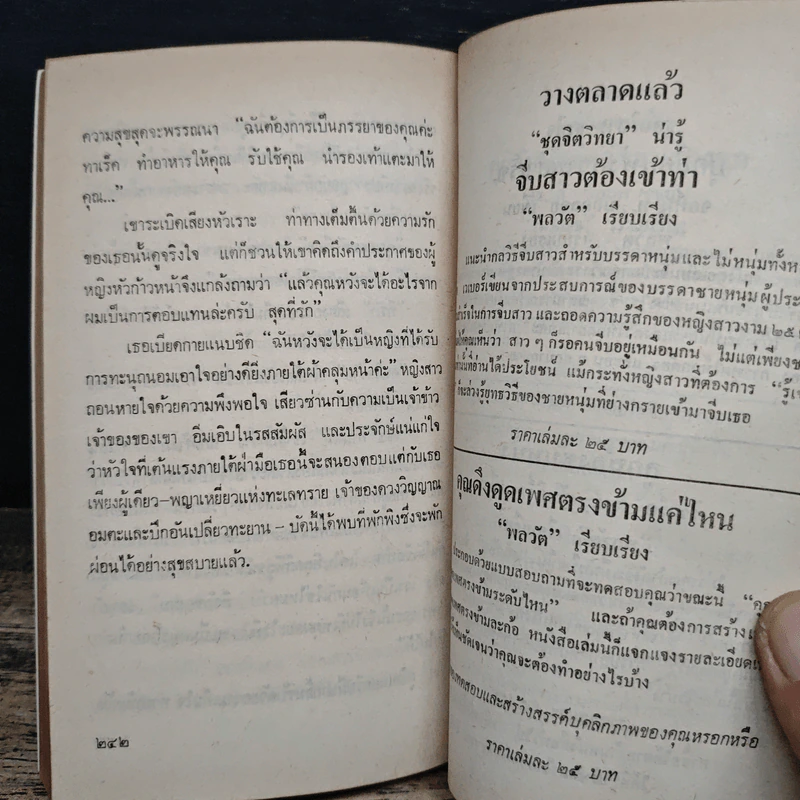 ความสุขสุดจะพรรณนา “ฉันต้องการเป็นภรรยาของคุณค่ะ
ทาเร็ค ทำอาหารให้คุณ รับใช้คุณ นำรองเท้าแตะมาให้
คุณ...”
เขาระเบิดเสียงหัวเราะ ท่าทางเต็มตื้นด้วยความรัก
ของเธอนั้นดูจริงใจ แต่ก็ชวนให้เขาคิดถึงคำประกาศของผู้
หญิงหัวก้าวหน้าจึงแกล้งถามว่า “แล้วคุณหวังจะได้อะไรจาก
ผมเป็นการตอบแทนล่ะครับ สุดที่รัก”
เธอเบียดกายแนบชิด “ฉันหวังจะได้เป็นหญิงที่ได้รับ
การทะนุถนอมเอาใจอย่างดียิ่งภายใต้ผ้าคลุมหน้าค่ะ” หญิงสาว
ถอนหายใจด้วยความพึงพอใจ เสียวซ่านกับความเป็นเจ้าข้าว
เจ้าของของเขา อิ่มเอิบในรสสัมผัส และประจักษ์แน่แก่ใจ
ว่าหัวใจที่เต้นแรงภายใต้ฝ่ามือเธอนี้จะสนองตอบแต่กับเธอ
เพียงผู้เดียว–พญาเหยี่ยวแห่งทะเลทราย เจ้าของดวงวิญญาณ
อมตะและปีกอันเปลี่ยวทะยาน – บัดนี้ได้พบที่พักพิงซึ่งจะพัก
ผ่อนได้อย่างสุขสบายแล้ว.
๒๔๒
วางตลาดแล้ว
“ชุดจิตวิทยา” น่ารู้
จีบสาวต้องเข้าท่า
“พลวัต” เรียบเรียง
แนะนำกลวิธีจีบสาวสำหรับบรรดาหนุ่มและไม่หนุ่มทั้งห
เวเบอร์เขียนจากประสบการณ์ของบรรดาชายหนุ่มผู้ประ
ในการจีบสาว และถอดความรู้สึกของหญิงสาวงาม ๒๕
ให้คุณเห็นว่า สาว ๆ ก็รอคนจีบอยู่เหมือนกัน ไม่แต่เพียงช
ที่อ่านได้ประโยชน์ แม้กระทั่งหญิงสาวที่ต้องการ “รู้เ
ล่วงรู้ยุทธวิธีของชายหนุ่มที่ย่างกรายเข้ามาจีบเธอ
ราคาเล่มละ ๒๕ บาท
คุณดึงดูดเพศตรงข้ามแค่ไหน
“พลวัต” เรียบเรียง
ประกอบด้วยแบบสอบถามที่จะทดสอบคุณว่าขณะนี้ “คุ
เพศตรงข้ามระดับไหน” และถ้าคุณต้องการสร้าง
เพศตรงข้ามละก้อ หนังสือเล่มนี้ก็แจกแจงรายละเอียด
ชัดเจนว่าคุณจะต้องทำอย่างไรบ้าง
ทดสอบและสร้างสรรค์บุคลิกภาพของคุณหรอกหรือ
ราคาเล่มละ ๒๕ บาท